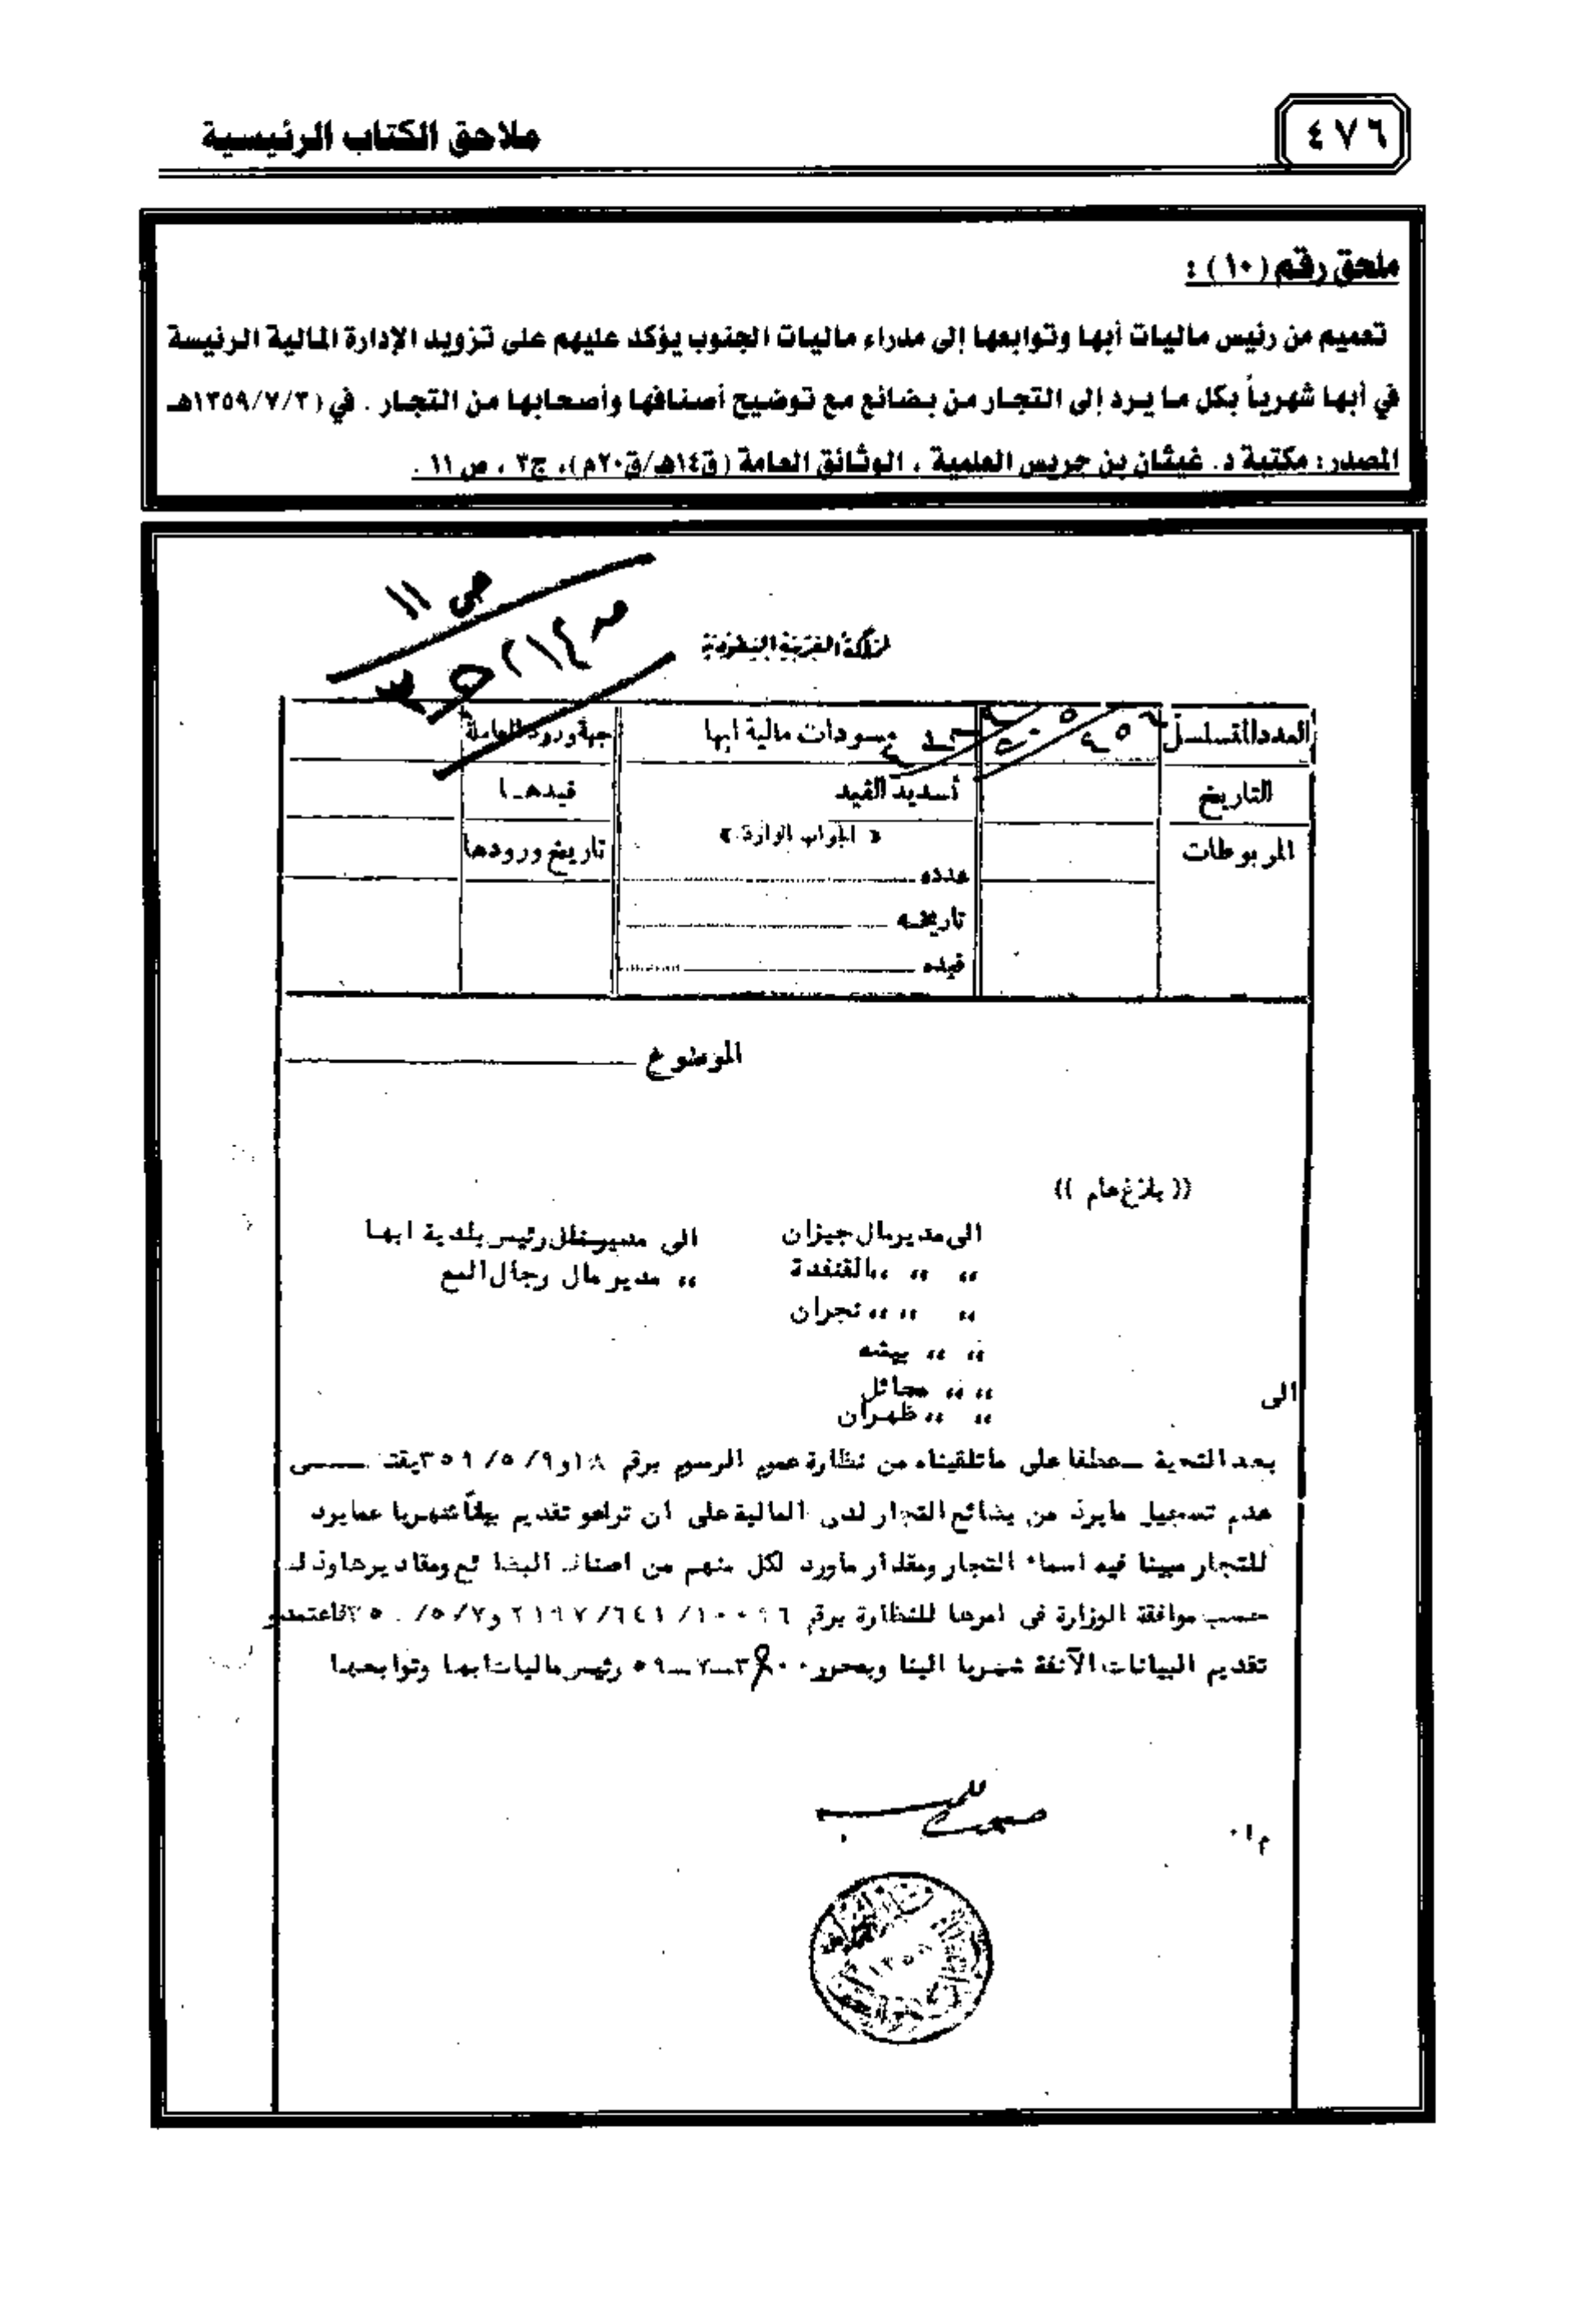 ٤٧٦
ملاحق الكتاب الرئيسية
ملحق رقم (١٠) :
تعميم من رئيس ماليات أبها وتوابعها إلى مدراء ماليات الجنوب يؤكد عليهم على تزويد الإدارة المالية الرئيسة
في أبها شهرياً بكل ما يرد إلى التجار من بضائع مع توضيح أصنافها وأصحابها من التجار . في (١٣٥٩/٧/٣هـ
المصدر : مكتبة د. غيثان بن جريس العلمية ، الوثائق العامة (ق١٤هـ/ق٢٠م)، ج٣ ، ص ١١ .
ص ١١
المملكة العربية السعودية
العدد المتسلسل
مسودات مالية ابها
جهة ورود المعاملة
التاريخ
تسديد القيد
قيدهـا
المربوطات
« الجواب الوارد »
تاريخ ورودها
عدده
تاريخه
قيده
الموضوع
(( بلاغ عام ))
الى مدير مال جيزان
الى رئيس بلدية ابها
،، ،، ،، القنفدة
،، مدير مال رجال المع
،، ،، ،، نجران
،، ،، بيشه
،، ،، محائل
،، ،، ظهران
الى
بعد التحية ــ عطفا على ماتلقيناه من نظارة عموم الرسوم برقم ١٨ و٩/ ٥/ ٣٥٩ يقتــضى
عدم تسجيل مايرد من بضائع التجار لدى المالية على ان تراعو تقديم بيانا شهريا عمايرد
للتجار مبينا فيه اسماء التجار ومقدار ماورد لكل منهم من اصناف البضائع ومقاديرها وذلك
حسب موافقة الوزارة فى امرها للنظارة برقم ١٠٠٩٦/ ٦٤١/ ٢١٩٧ و٧/ ٥/ فاعتمدو
تقديم البيانات الآنفة شهريا الينا ٣ــ٧ــ٥٩ رئيس ماليات ابها وتوابعها